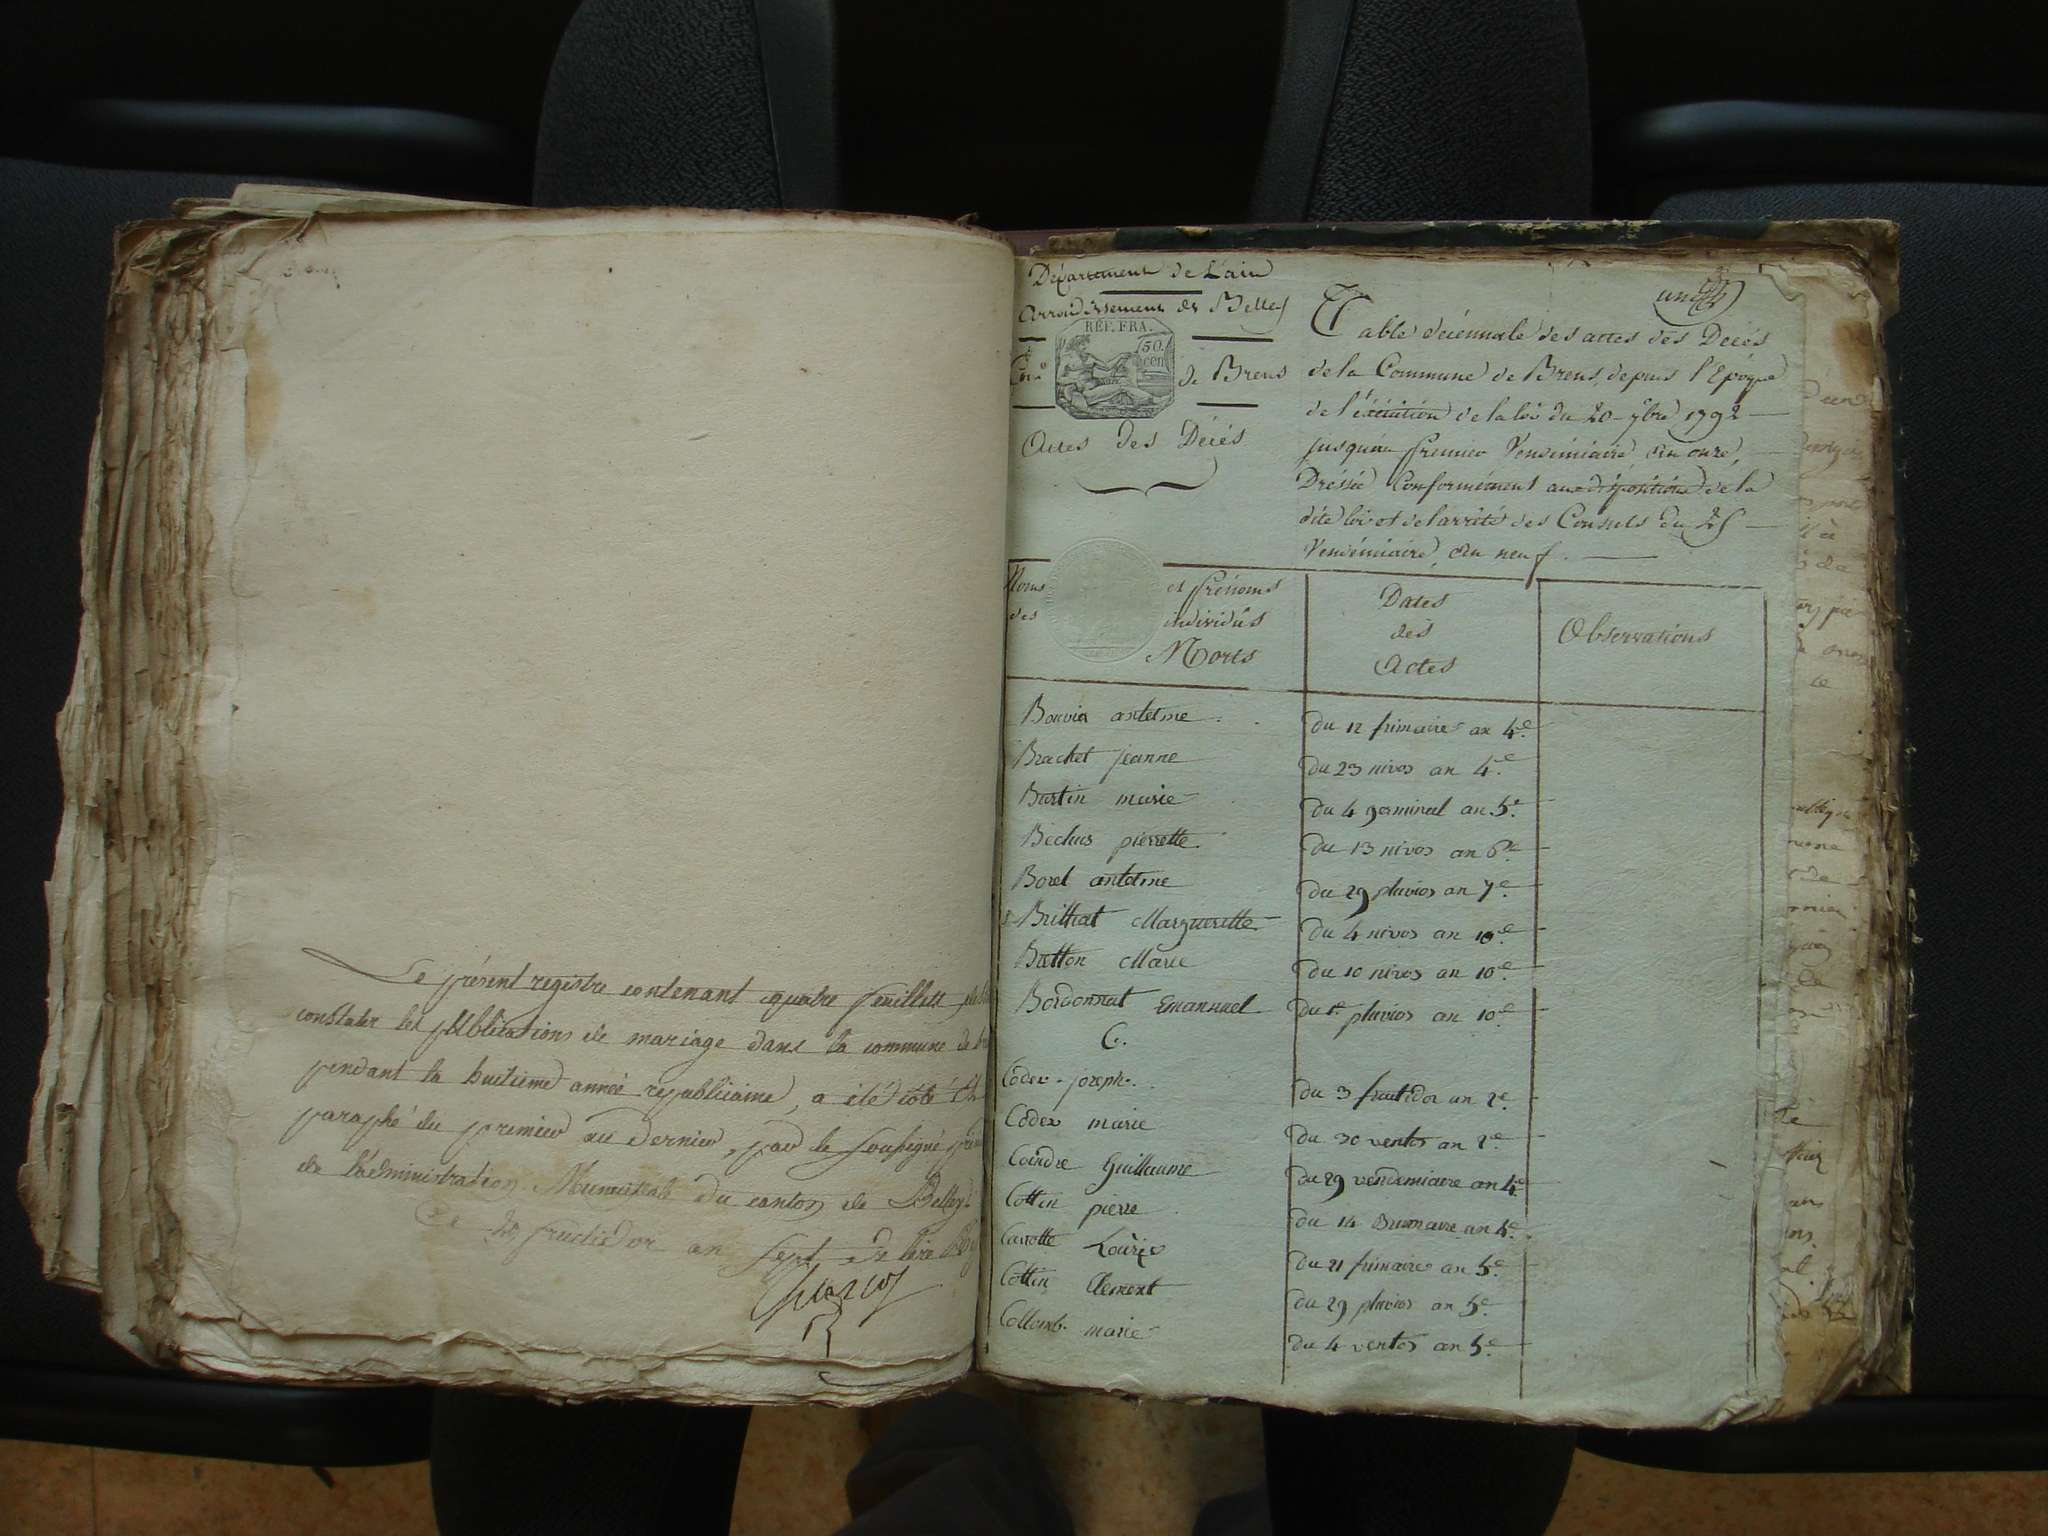 Le présent registre contenant quatre feuillets
constater les publications de mariage dans la commune de
pendant la huitieme année republicaine, a été coté et
paraphé du premier au dernier, par le soussigné
de l'administration Municipale du canton de Belley
Ce fructidor an sept de l'ère
Département de L'ain
Arrondissement de Belley
REP. FRA.
50 cen
de Brens
Actes des Décés
une
Table décennale des actes des Décés
de la Commune de Brens, depuis l'Epoque
de l'éxécution de la loi du 20 7bre 1792
jusqu'au premier Vendémiaire An onze,
Dréssée Conformément aux dispositions de la
dite loi et de l'arrêté des Consuls du 25
Vendémiaire, An neuf.
Noms et prénoms
des individûs
Morts
Dates
des
Actes
Observations
Bouvier antelme du 12 frimaire an 4e.
Brachet jeanne du 23 nivos an 4e.
Burtin marie du 4 germinal an 5e.
Béchus pierrette du 13 nivos an 6e.
Borel antelme du 29 pluvios an 7e.
Brilliat Marguerette du 4 nivos an 10e.
Bretton Marie du 10 nivos an 10e.
Bordonnat Emanuel du 1er pluvios an 10e.
C.
Coder joseph du 3 fructidor an 2e.
Coder marie du 30 ventos an 2e
Coindre Guillaume du 29 vendemiaire an 4e
Cottin pierre du 14 Brumaire an 5e.
Carrotte Louise du 21 frimaire an 5e.
Cottin Clement du 29 pluvios an 5e.
Collomb marie du 4 ventos an 5e.